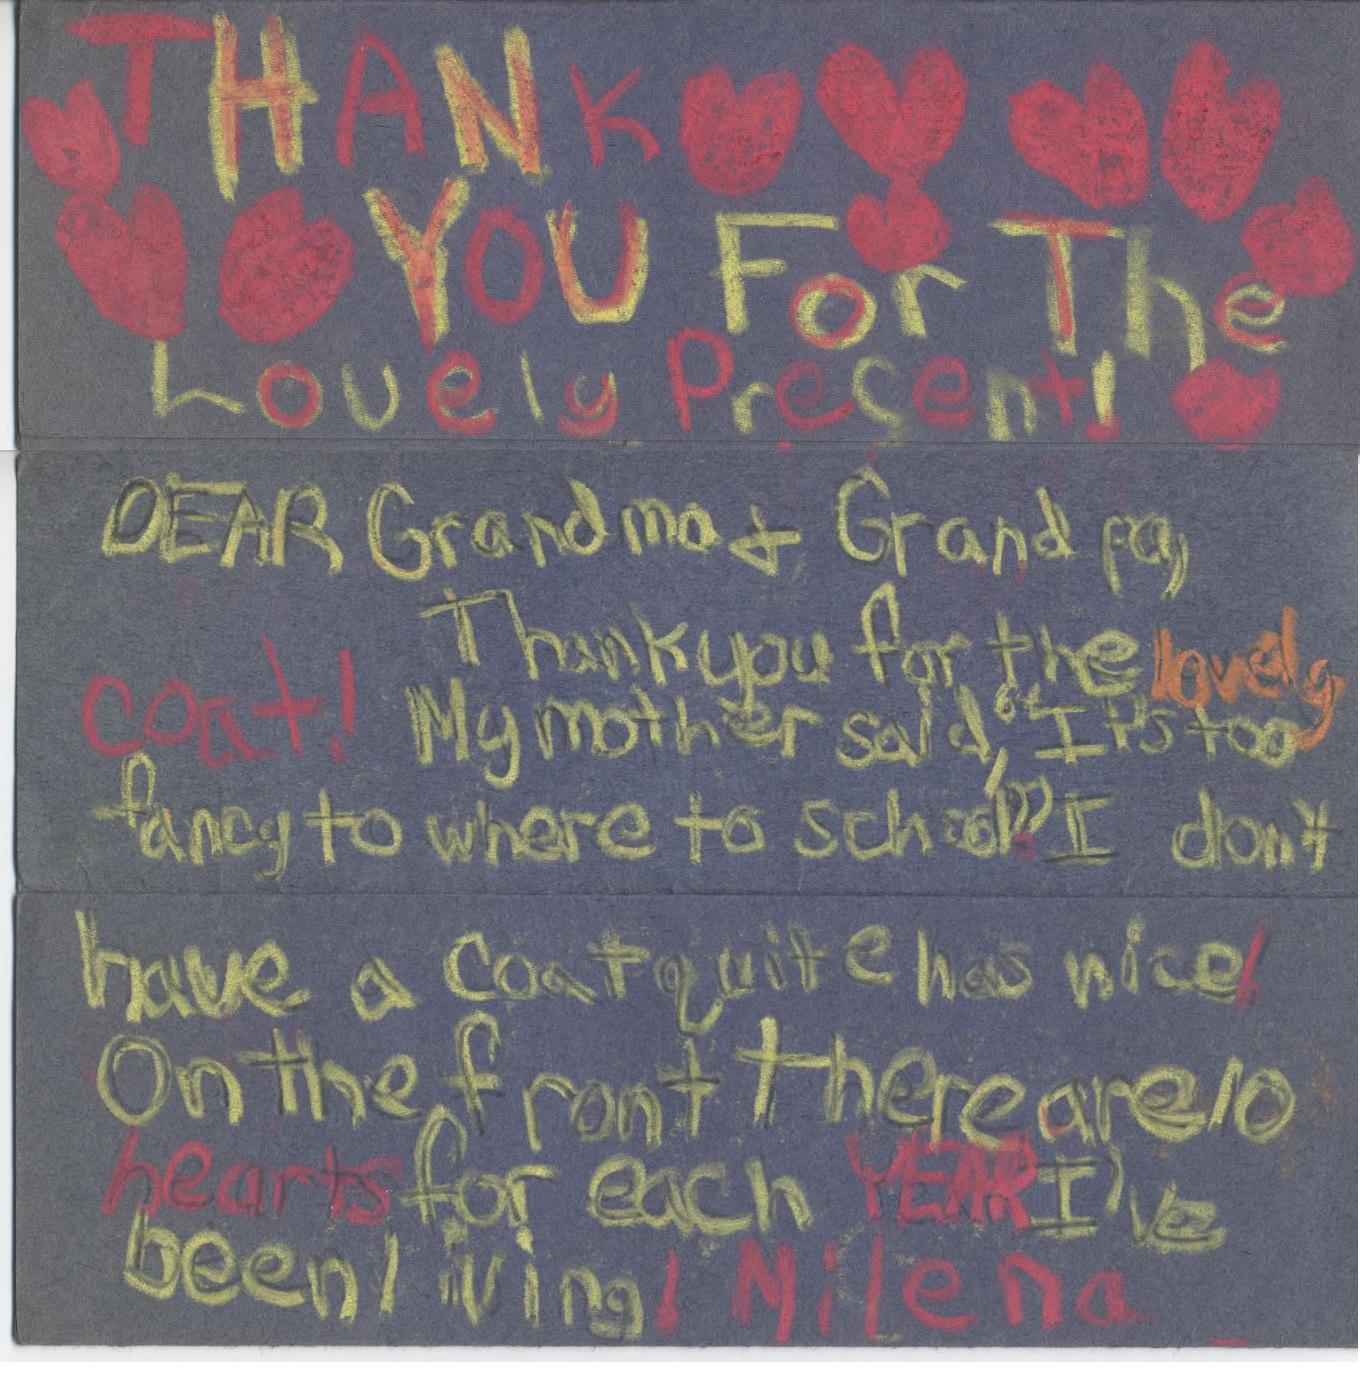 THANK
YOU For The
Lovely Present!
DEAR Grandma & Grandpa,
Thank you for the lovely
coat! My mother said, "It's too
fancy to where to school." I don't
have a coat quite has nice!
On the front there are 10
hearts for each YEAR I've
been living! Milena